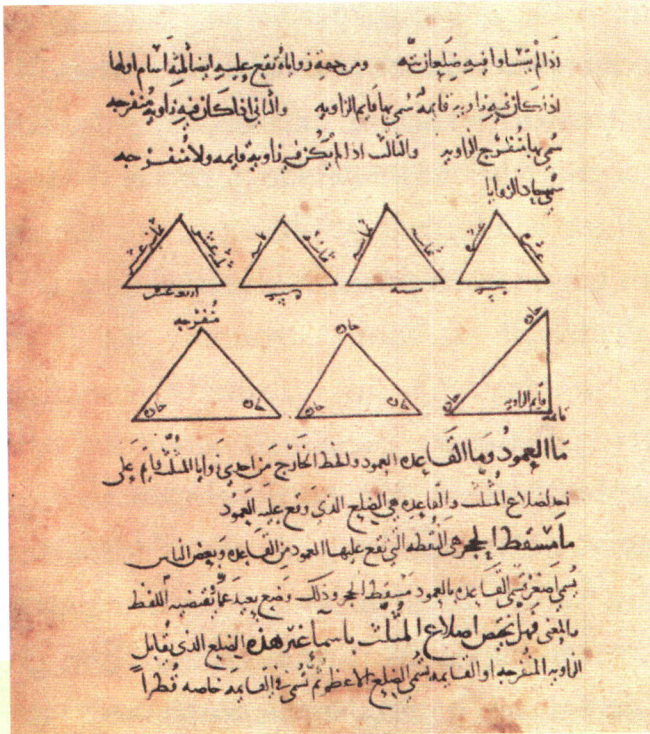 اذا لم يتساوا فيه ضلعان منه ومن جهة زواياه تقع عليه ايضا ثلثة اسام اولها
اذا كان فيه زاويه قايمه سُمي بها قايم الزاويه والثاني اذا كان فيه زاويه مُنفرجه
سُمي بها مُنفرج الزاويه والثالث اذا لم يكن فيه زاوية قايمه ولا مُنفرجه
سُمي حاد الزوايا
عشره عشره
ثمانيه
سته
اربعه عشر
مُنفرجه
حاده حاده
حاده حاده حاده
حاده حاده قايم الزاويه
قايمه
مَا العمودُ وَمَا القَاعِده العمود والخط الخارج مِن احدى زوايا المُثلث قايم عَلى
احد اضلاع المُثلث والقاعِده هي الضِلع الذي وقع عليه العَمُود
ما مسقط الحجر هي النُقطه التي تقع عليها العمود مِن القاعِده وبعض الناس
القاعِده بالعمود مَسقط الحجر وذلك وَضع بعيد عمّا تقتضيه اللفظ
بالمعنى فهل يختص اضلاع المُثلث باسمآ غير هَذه الضِلع الذي يُقابل
الزاويه المُنفرجه او القَايمه تُسمى الضِلع الاعظم ثم تُسمى في القايمه خاصه قُطراً